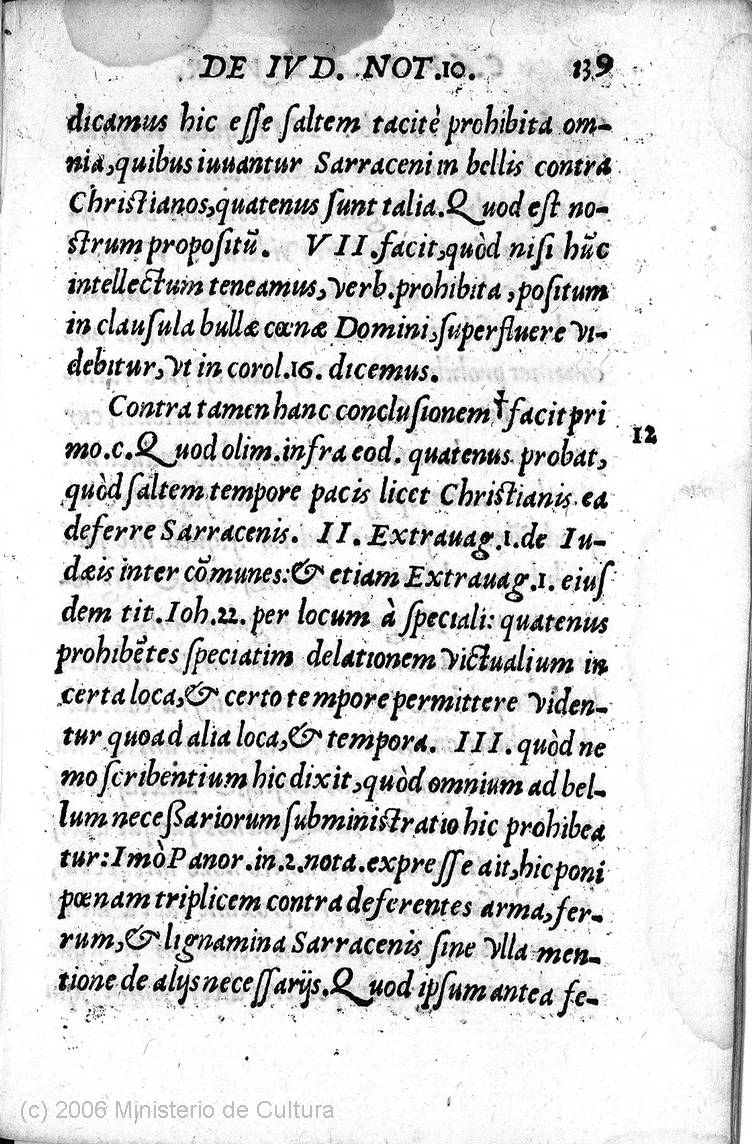 DE IVD. NOT.10. 139
dicamus hic esse saltem tacitè prohibita om-
nia,quibus iuuantur Sarraceni in bellis contra
Christianos,quatenus sunt talia.Quod est no-
strum propositũ. VII.facit,quòd nisi hũc
intellectum teneamus,verb.prohibita ,positum
in clausula bullæ cœnæ Domini,superfluere vi-
debitur,vt in corol.16. dicemus.
Contra tamen hanc conclusionem†facit pri
mo.c.Quod olim.infra eod. quatenus probat,
quòd saltem tempore pacis licet Christianis ea
deferre Sarracenis. II. Extrauag.1.de Iu-
dæis inter cõmunes:& etiam Extrauag.1. eius
dem tit.Ioh.22. per locum à speciali: quatenus
prohibẽtes speciatim delationem victualium in
certa loca,& certo tempore permittere viden-
tur quoad alia loca,& tempora. III. quòd ne
mo scribentium hic dixit,quòd omnium ad bel-
lum necessariorum subministratio hic prohibea
tur:Imò Panor.in.2.nota.expresse ait,hic poni
pœnam triplicem contra deferentes arma,fer-
rum,& lignamina Sarracenis sine vlla men-
tione de alijs necessarijs.Quod ipsum antea fe-
12
(c) 2006 Ministerio de Cultura